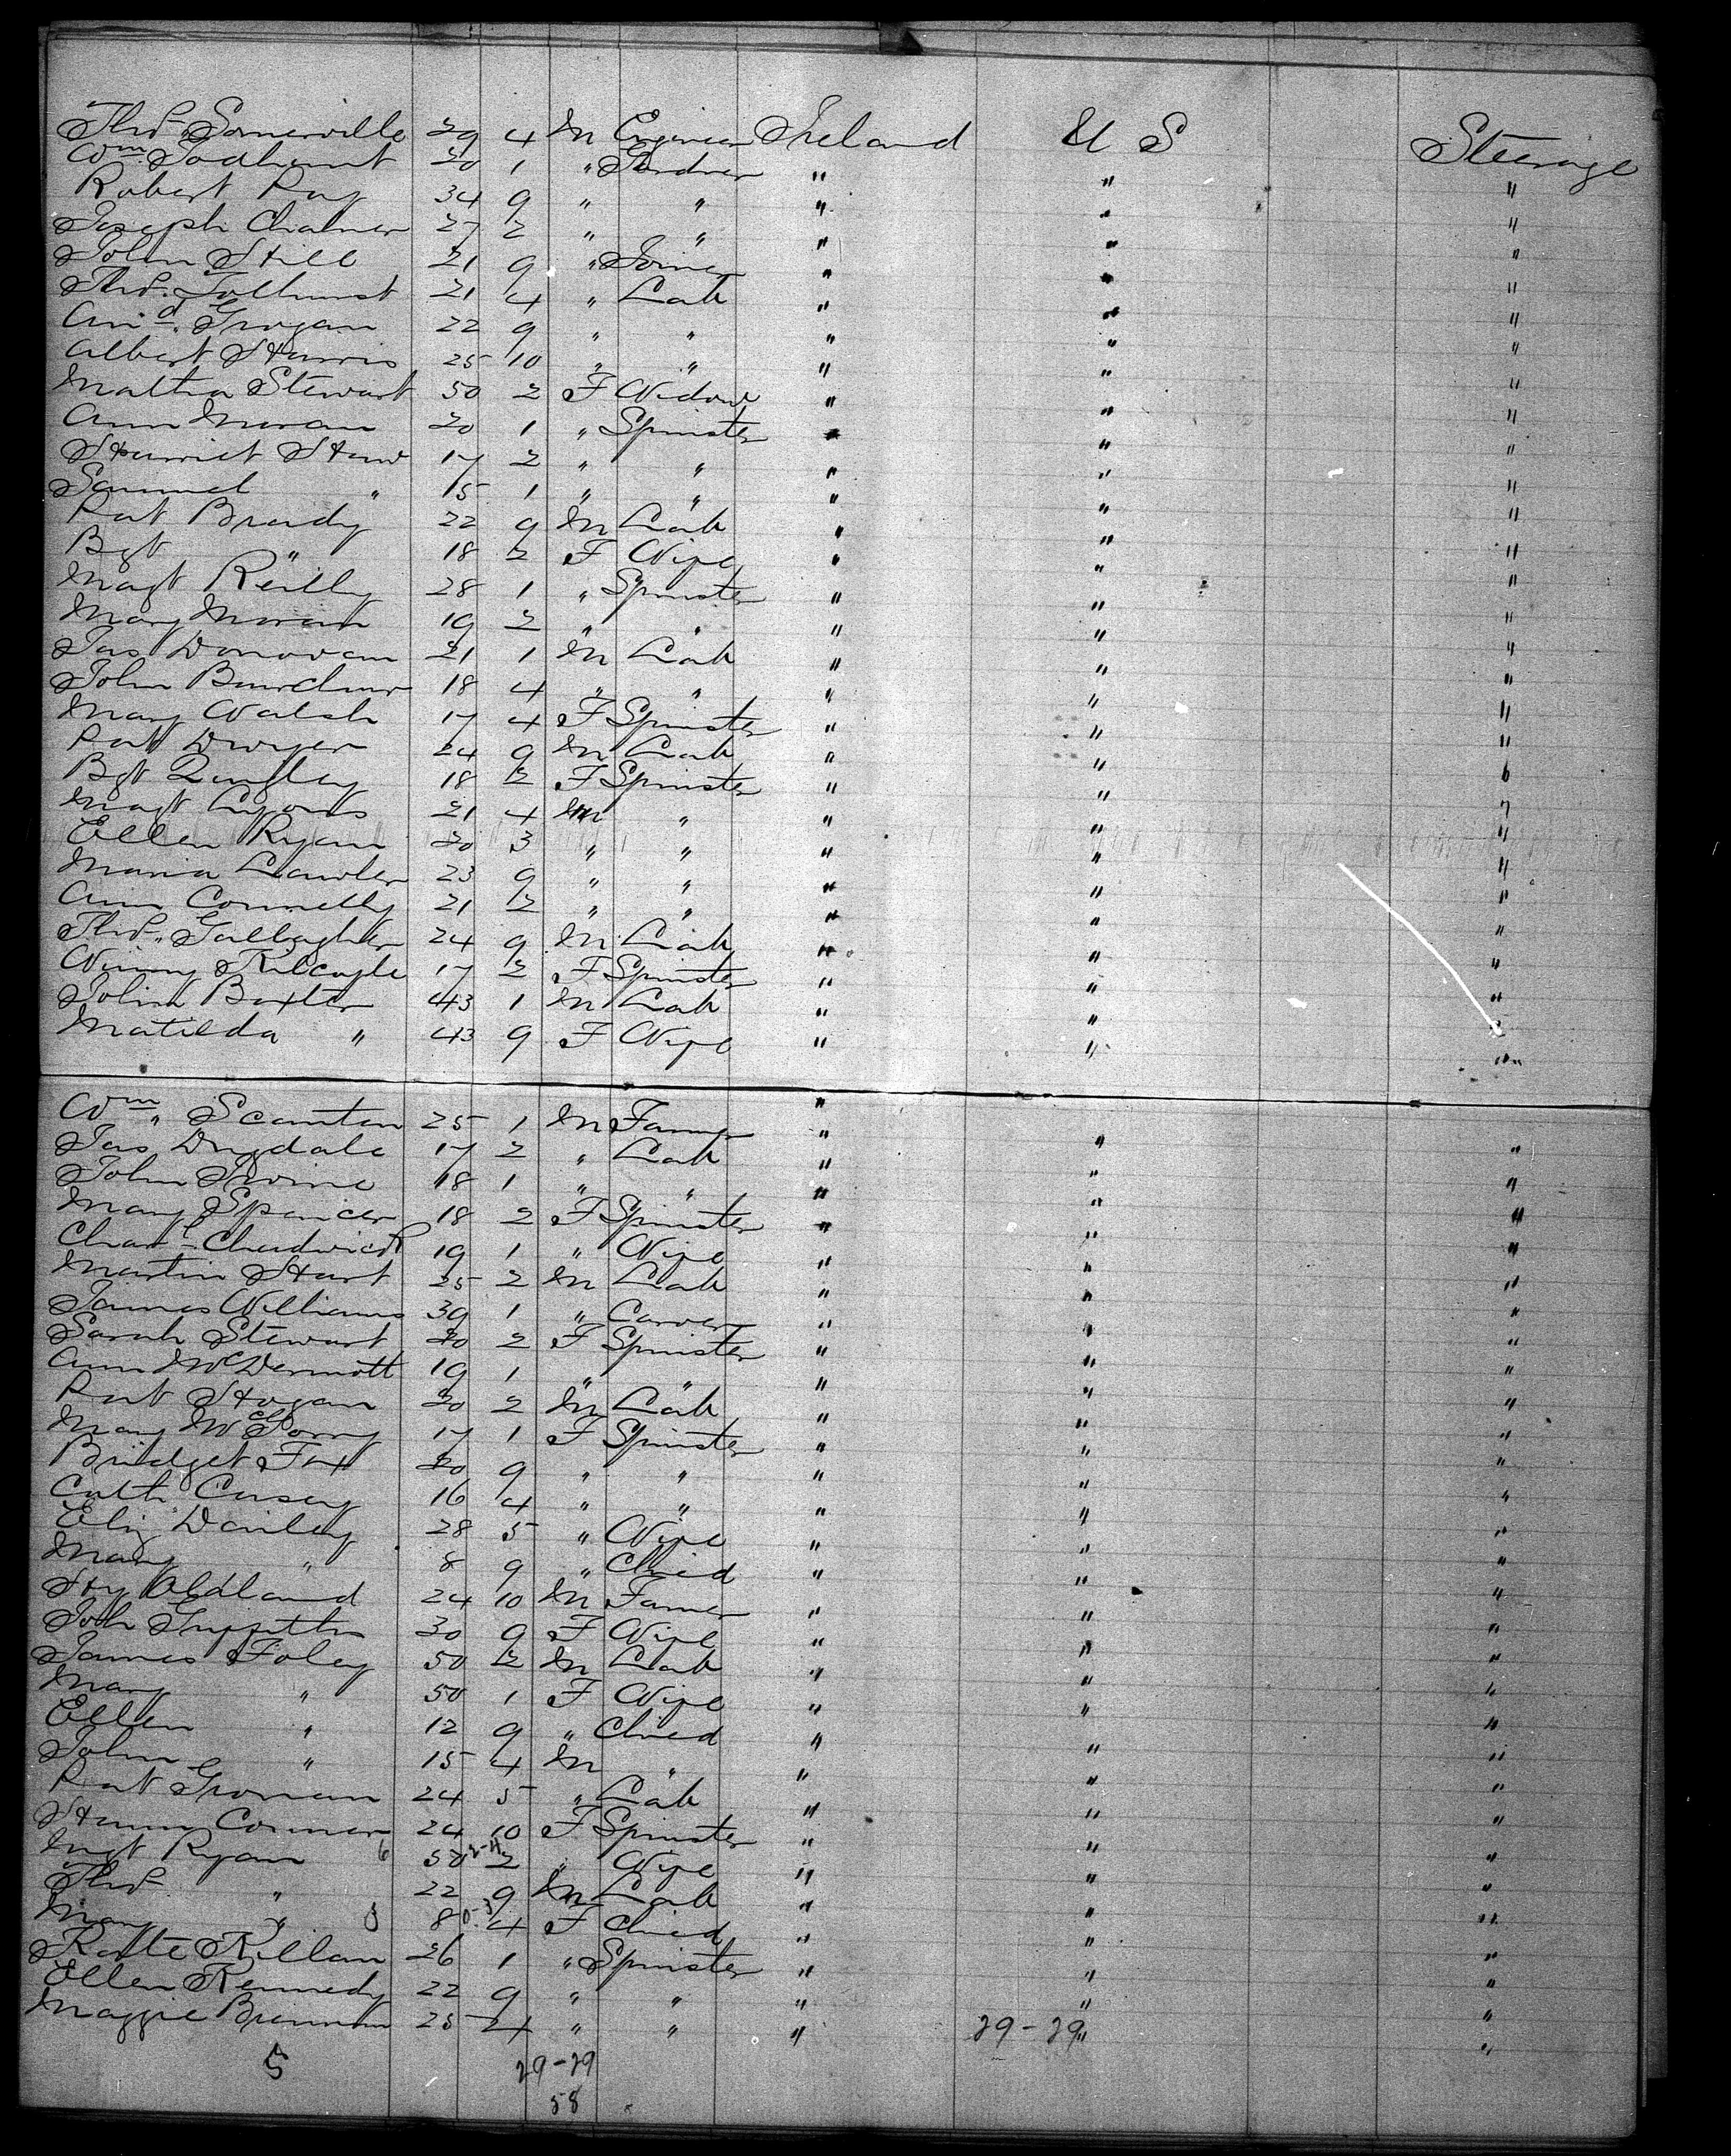 Thos. Somerville 29 4 M Engineer Ireland U S Steerage
Wm Todhunt 20 1 " Gardner " " "
Robert Ray 34 9 " " " " "
Joseph Chalmer 27 2 " " " " "
John Hill 21 9 " Joiner " " "
Thos. Tolhurst 21 4 " Lab " " "
Grogan 22 9 " " " " "
Albert Harris 25 10 " " " " "
Martha Stewart 50 2 F Widow " " "
Ann Moran 20 1 " Spinster " " "
Harriet 17 2 " " " " "
Samuel " 15 1 " " " " "
Pat Brady 22 9 M Lab " " "
Bgt " 18 2 F Wife " " "
Magt Reilly 28 1 " Spinster " " "
Mary Moran 19 2 " " " " "
Jas Donovan 21 1 M Lab " " "
John 18 4 " " " " "
Mary Walsh 17 4 F Spinster " " "
Pat Dwyer 24 9 M Lab " " "
Bgt Quigley 18 2 F Spinster " " "
Magt Lyons 21 4 M " " " "
Ellen Ryan 20 3 " " " " "
Maria Lawler 23 9 " " " " "
Ann Connelly 21 2 " " " " "
Thos. Gallagher 24 9 M Lab " " "
Winny Kilcoyle 17 2 F Spinster " " "
John Baxter 43 1 M Lab " " "
Matilda " 43 9 F Wife " " "
Wm. Scanton 25 1 M Farmer " " "
Jas Dugdale 17 2 " Lab " " "
John Irvine 18 1 " " " " "
Mary Spencer 18 2 F Spinster " " "
Chart Chadwick 19 1 " Wife " " "
Martin Hart 25 2 M Lab " " "
James Williams 39 1 " Carver " " "
Sarah Stewart 20 2 F Spinster " " "
Ann McDermott 19 1 " " " " "
Pat Hogan 20 2 M Lab " " "
Mary 17 1 F Spinster " " "
Bridget Fox 20 9 " " " " "
Cath Casey 16 4 " " " " "
Eliz Danley 28 5 " Wife " " "
Mary " 8 9 " Child " " "
Hy Oldland 24 10 M Farmer " " "
Griffiths 30 9 F Wife " " "
James Foley 50 2 M Lab " " "
Mary " 50 1 F Wife " " "
Ellen " 12 9 " Child " " "
John " 15 4 M " " " "
Pat Gronan 24 5 " Lab " " "
Hanna Connor 24 10 F Spinster " " "
Mgt Ryan 6 50 2-4 2 " Wife " " "
Thos " 22 9 M Lab " " "
Mary " 8 4 F Child " " "
Kate Killan 26 1 " Spinster " " "
Ellen Kennedy 22 9 " " " " "
Maggie Brennan 25 4 " " " 29-29 " "
5 29-29
58